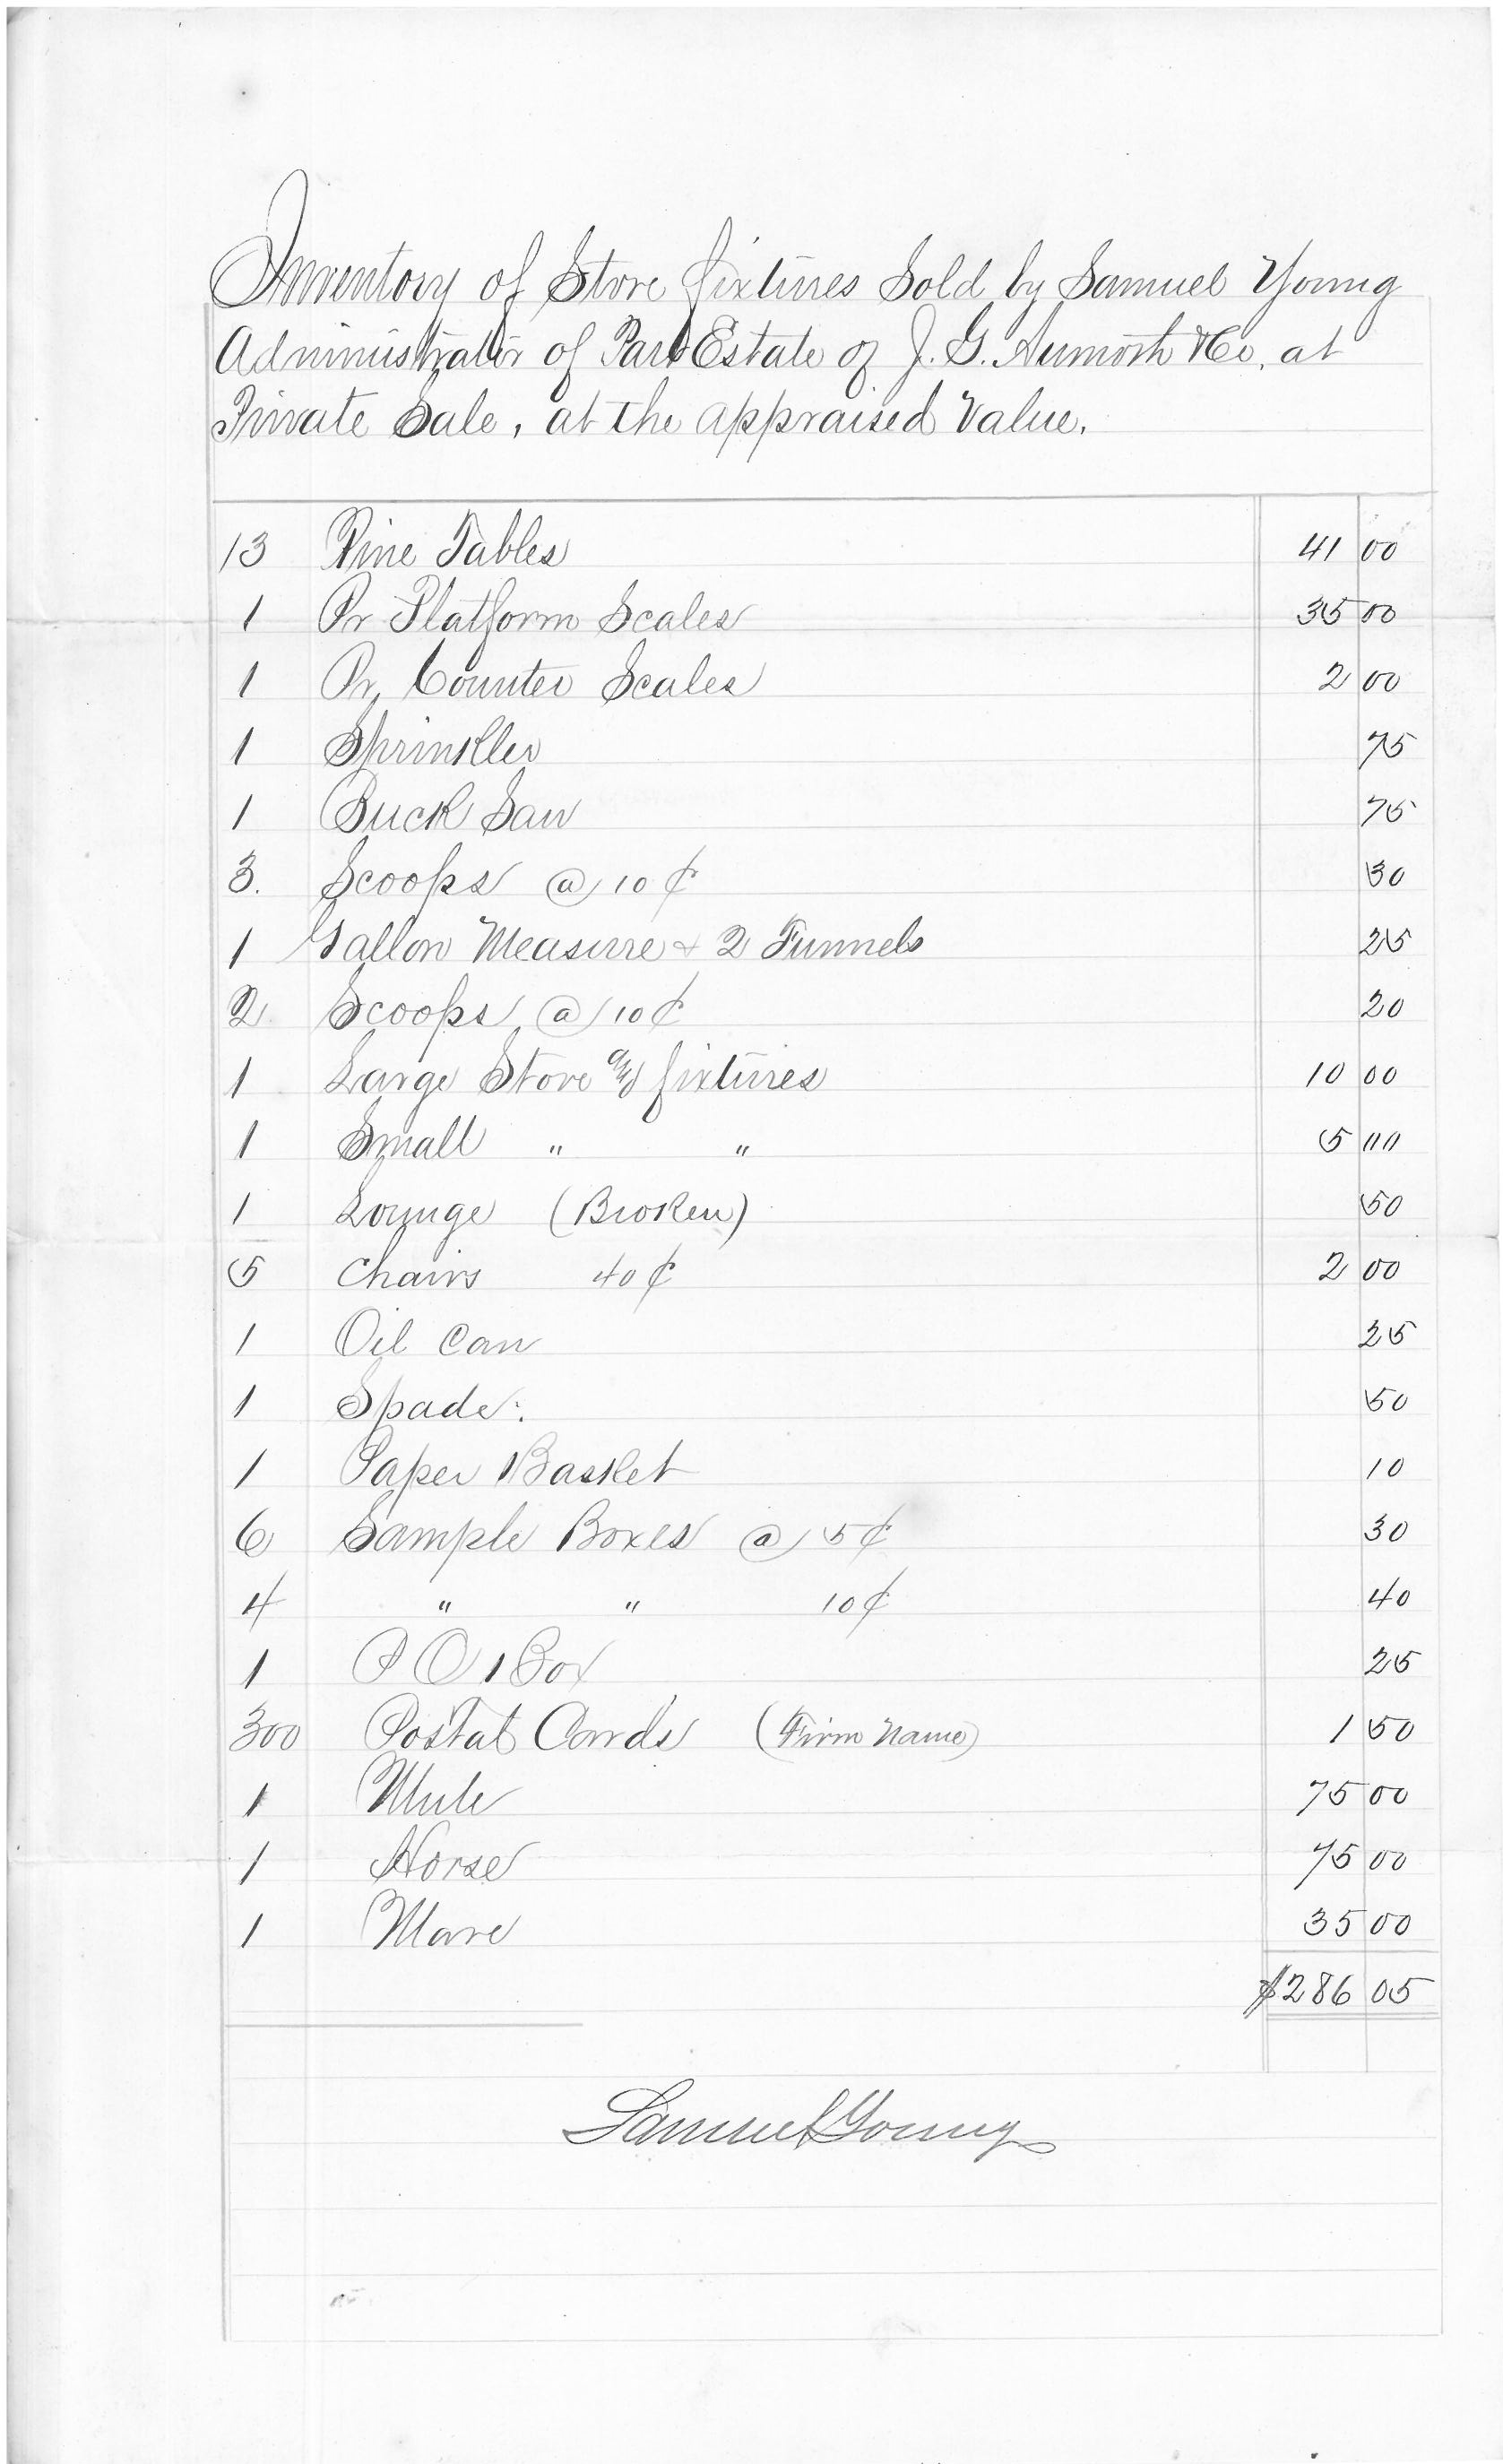 Inventory of Store fixtures Sold by Samuel Young
Administrator of Part Estate of J. G. Aumock & Co. at
Private Sale, at the appraised Value.
13 Pine Tables 41 00
1 Pr Platform Scales 35 00
1 Pr, Counter Scales 2 00
1 Sprinkler 75
1 Buck Saw 75
3. Scoops @ 10 ¢ 30
1 Gallon Measure & 2 Funnels 25
2 Scoops @ 10 ¢ 20
1 Large Stove and fixtures 10 00
1 Small " " 5 00
1 Lounge (Broken) 50
5 Chairs 40 ¢ 2 00
1 Oil Can 25
1 Spade. 50
1 Paper Basket 10
6 Sample Boxes @ 5 ¢ 30
4 " " 10 ¢ 40
1 P O Box 25
300 Postal Cards (Firm Name) 1 50
1 Mule 75 00
1 Horse 75 00
1 Mare 35 00
$286 05
Samuel Young